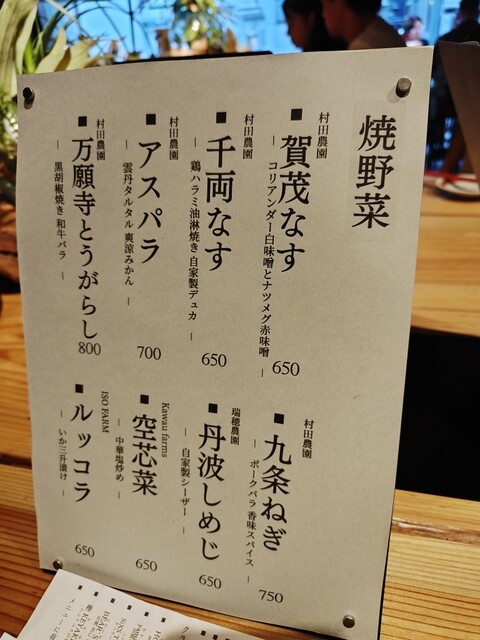 焼野菜
村田農園
■賀茂なす
― コリアンダー白味噌とナツメグ赤味噌 ―
650
村田農園
■千両なす
― 鶏ハラミ油淋焼き 自家製デュカ ―
650
村田農園
■アスパラ
― 雲丹タルタル 爽涼みかん ―
700
村田農園
■万願寺とうがらし
― 黒胡椒焼き 和牛バラ ―
800
村田農園
■九条ねぎ
― ポークバラ 香味スパイス ―
750
瑞穂農園
■丹波しめじ
― 自家製シーザー ―
650
Kawau farms
■空芯菜
― 中華塩炒め ―
650
ISO FARM
■ルッコラ
― いか三升漬け ―
650